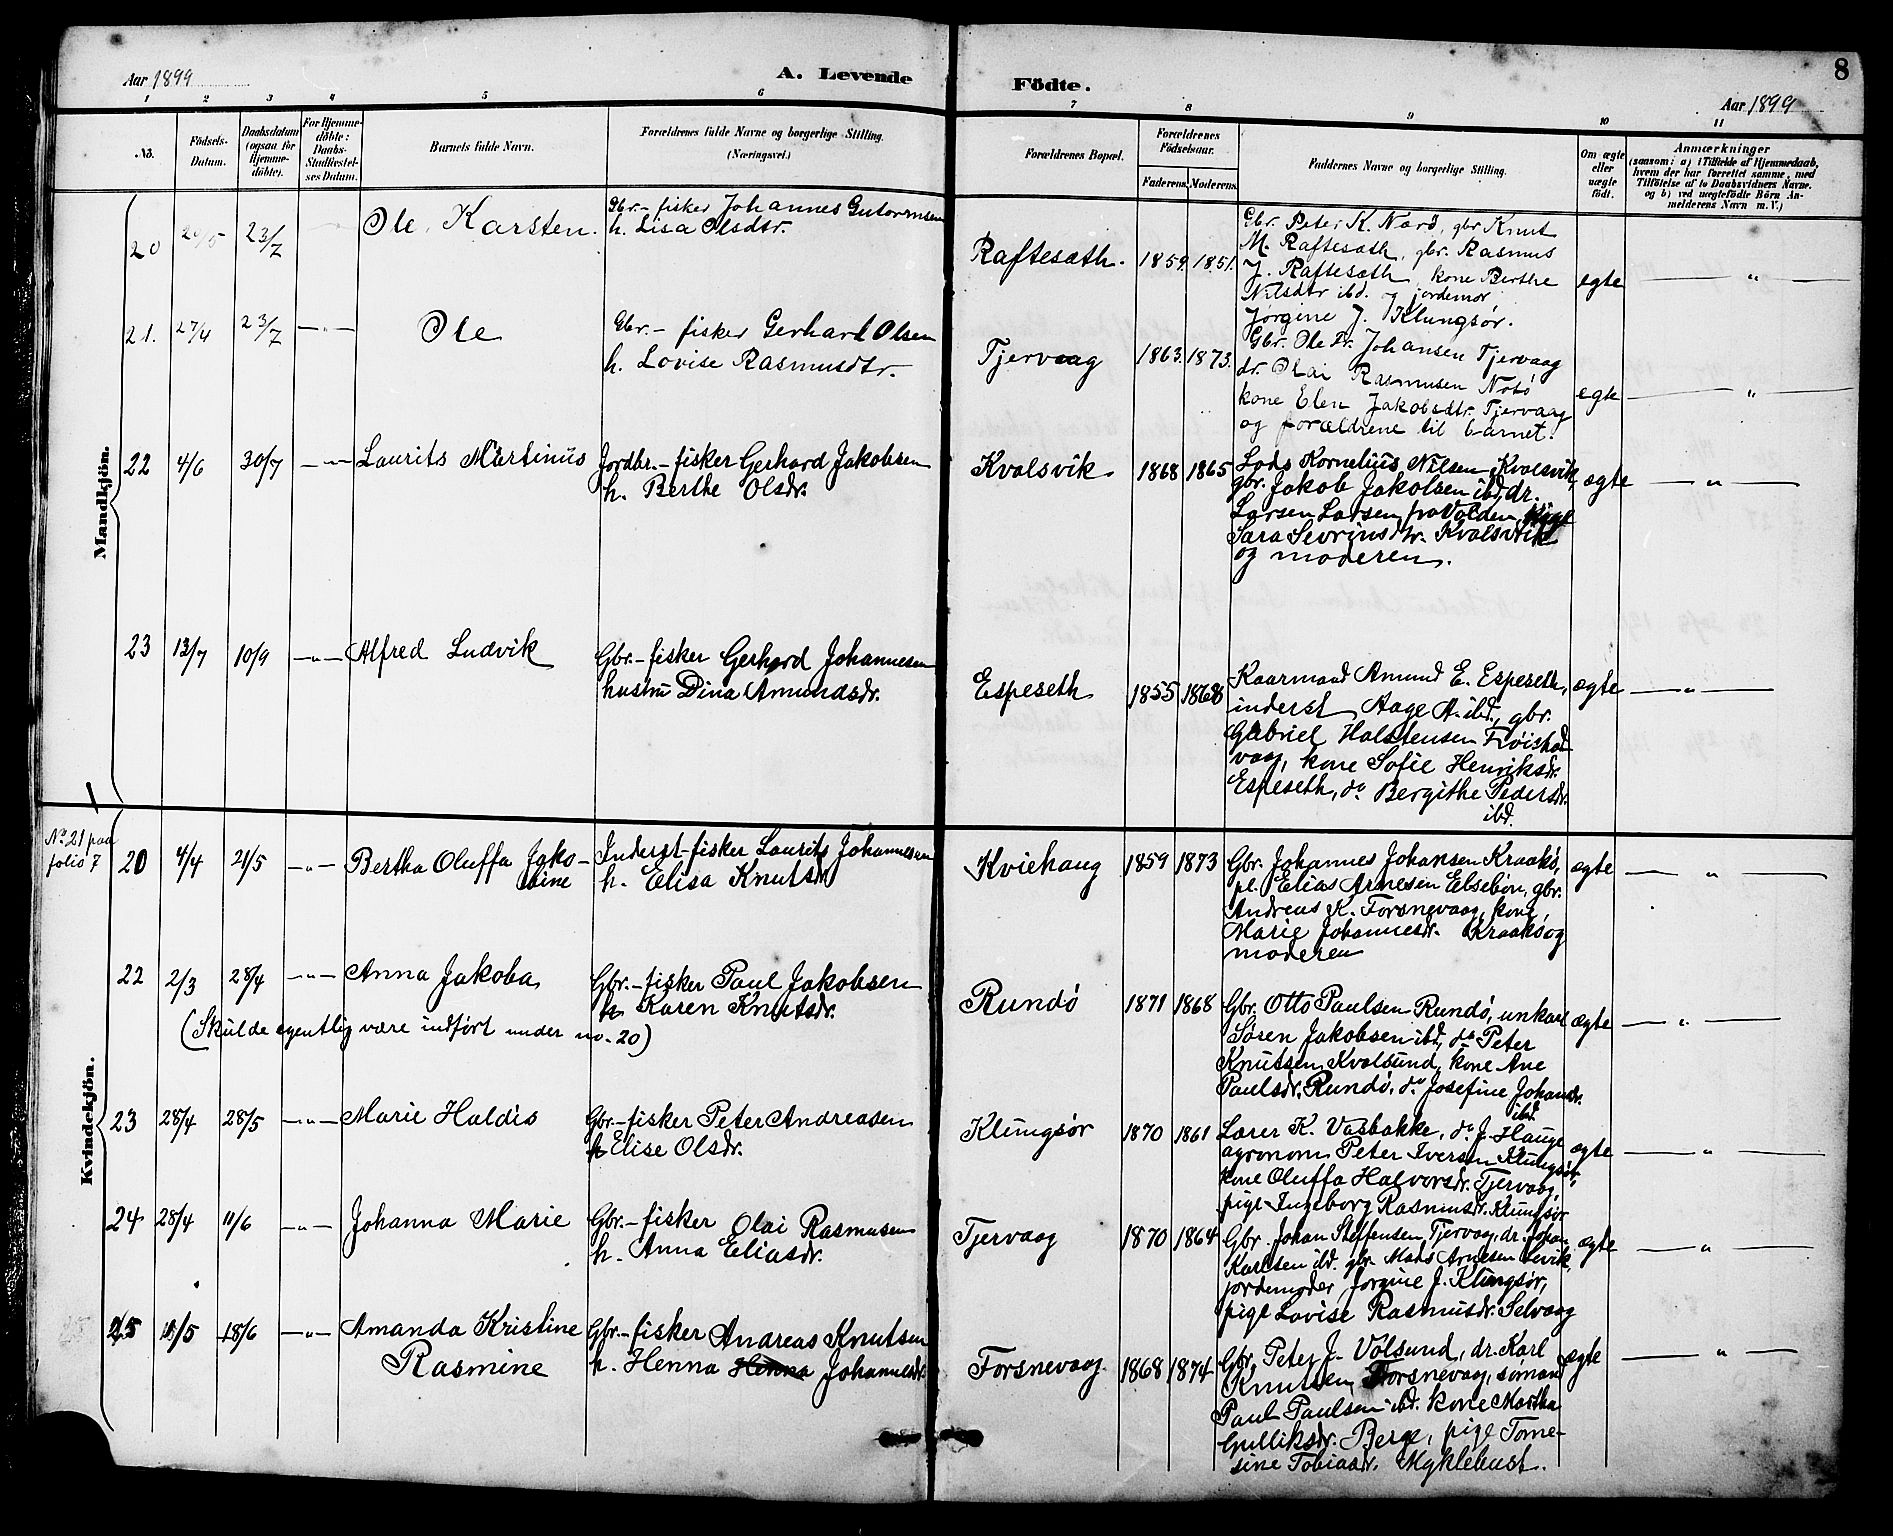 Aar 1899
A. Levende
Födte.
8
Aar 1899
1 2 3 4 5 6 7 8 9 10 11
No.
Födsels-
Datum.
Daabsdatum
(ogsaa for
Hjemme-
döbte).
For Hjemme-
döbte:
Daabs-
Stadfæstel-
ses Datum.
Barnets fulde Navn.
Forældrenes fulde Navne og borgerlige Stilling.
(Næringsvei.)
Forældrenes Bopæl.
Forældrenes
Födselsaar.
Faderens. Moderens.
Faddernes Navne og borgerlige Stilling.
Om ægte
eller
uægte
födt.
Anmærkninger
(saasom: a) i Tilfælde af Hjemmedaab,
hvem der har forrettet samme, med
Tilföielse af to Daabsvidners Navne,
og b) ved uægtefödte Börn An-
melderens Navn m. V.)
Mandkjön.
20 23/7 Ole Karsten.
Gbr.- fisker Johannes Gutormsen
h. Lisa Olsdtr.
Raftesæth. 1859. 1851.
Gbr. Peter K. Nærö, gbr Knut
M. Raftesæth, gbr. Rasmus
J. Raftesæth kone Berthe
Nilsdtr ibd. og jordemor
Jørgine J. Klungsør.
egte — " —
21. 27/4 23/7 — " — Ole
Gbr.- fisker Gerhard Olsen
h. Lovise Rasmusdtr.
Tjervaag 1863. 1873.
Gbr. Ole Fr. Johansen Tjervaag
dr. Olai Rasmusen Notö
kone Elen Jakobsdtr. Tjervaag
og forældrene til barnet.
egte — " —
22 4/6 30/7 — " — Laurits Martinus
Jordbr.- fisker Gerhard Jakobsen
h. Berthe Olsdr.
Kvalsvik 1868 1865
Lods Kornelius Nilsen Kvalsvik,
gbr. Jakob Jakobsen ibd, dr.
Larsen Larsen fra Volden, pige
Sara Sevrinsdtr. Kvalsvik
og moderen.
ægte — " —
23 13/7 10/9 — " — Alfred Ludvik
Gbr.- fisker Gerhard Johannesen
hustru Dina Amundsdr.
Espeseth 1855 1868
Kaarmand Amund E. Espeseth,
inderst Aage A. ibd., gbr.
Gabriel Halstensen Frøishol
vaag, kone Sofie Henriksdr.
Espeseth, do Bergithe Pedersdr.
ibd.
ægte — " —
Kvindekjön.
No. 21 paa
folio 7
20 4/4 21/5 — " — Bertha Oluffa Jako-
bine
Inderst-fisker Laurits Johannesen
h. Elisa Knutsdr
Kviehaug 1859 1873
Gbr. Johannes Johansen Kraakö,
pl. Elias Arnesen Elsebøn, gbr.
Andreas K. Forsnevaag, kone,
Marie Johannesdr. Kraakö og
moderen
ægte — " —
22 2/3 28/4 — " — Anna Jakoba
Gbr.- fisker Paul Jakobsen
h Karen Knutsdr.
(Skulde egentlig være indført under no. 20)
Rundö 1871 1868
Gbr. Otto Paulsen Rundö, unkarl
Søren Jakobsen ibd, do Peter
Knutsen Kvalsund, kone Ane
Paulsdr. Rundö, do Josefine Johansdr.
ibd.
ægte — " —
23 28/4 28/5 — " — Marie Haldis
Gbr.- fisker Peter Andreasen
h Elise Olsdr.
Klungsør 1870 1861
Lærer K. Vasbakke, do J. Hauge
agronom Peter Iversen Klungsør,
kone Oluffa Halvorsdr. Tjervaag,
pige Ingeborg Rasmusdr. Klungsør
ægte — " —
24 28/4 11/6 — " — Johanna Marie
Gbr.- fisker Olai Rasmusen
h. Anna Eliasdr.
Tjervaag 1870 1864
Gbr. Johan Steffensen Tjervaag, dr. Johan
Karlsen ibd. gbr Mads Arnesen Levik,
jordemoder Jorgine J. Klungsør,
pige Lovise Rasmusdr. Selvaag
ægte — " —
25 11/5 18/6 — " — Amanda Kristine
Rasmine
Gbr.- fisker Andreas Knutsen
h. Henna Johannesdr.
Forsnevaag 1868 1874
Gbr. Peter J. Volsund, dr. Karl
Knutsen Forsnevaag, sömand
Paul Paulsen ibd. kone Martha
Gulliksdr. Berge, pige Tome-
sine Tobiasdr. Myklebust.
ægte — " —